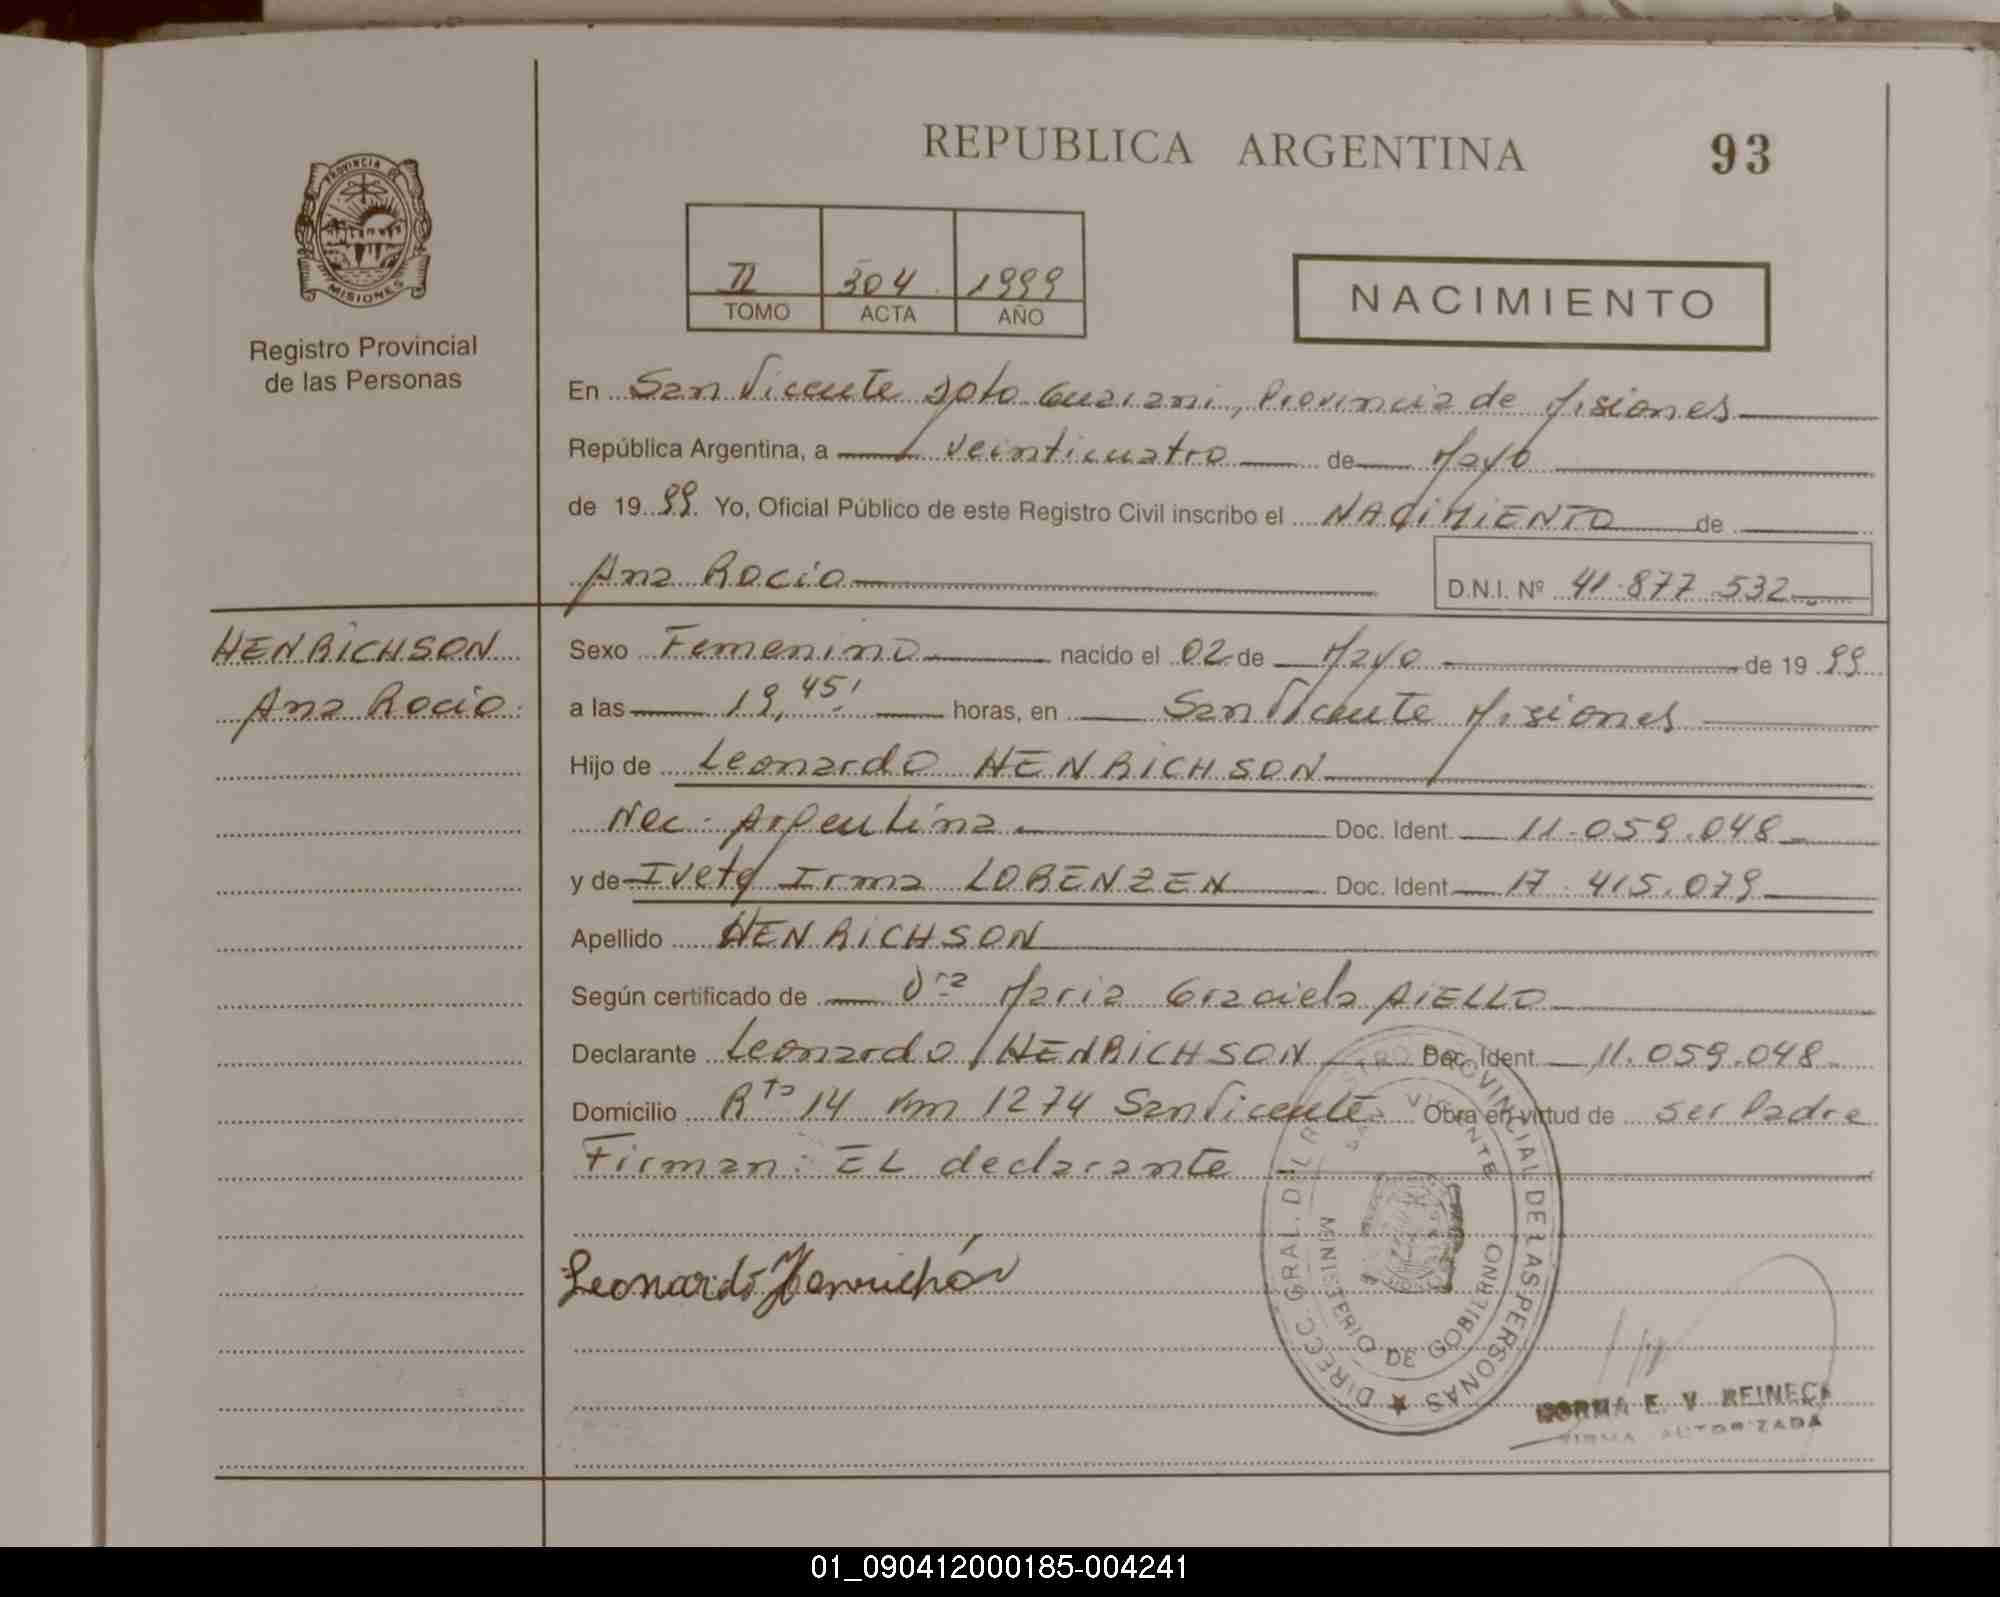 REPUBLICA ARGENTINA
93
PROVINCIA DE
MISIONES
Registro Provincial
de las Personas
II 304 1999
TOMO ACTA AÑO
NACIMIENTO
En San Vicente Dpto Guarani, Provincia de Misiones
República Argentina, a veinticuatro de Mayo
de 1999 Yo, Oficial Público de este Registro Civil inscribo el NACIMIENTO de
Ana Rocio
D.N.I. Nº 41.877.532
HENRICHSON
Ana Rocio.
Sexo Femenino nacido el 02 de Mayo de 1999
a las 19,45' horas, en San Vicente Misiones
Hijo de Leonardo HENRICHSON
Nac. Argentina Doc. Ident. 11.059.048
y de Irma LORENZEN Doc. Ident. 17.415.079
Apellido HENRICHSON
Según certificado de Dra Maria Graciela AIELLO
Declarante Leonardo HENRICHSON Doc. Ident. 11.059.048
Domicilio Rta 14 Km 1274 San Vicente Obra en virtud de ser Padre
Firman: EL declarante
Leonardo
DIRECC. GRAL. DEL REGISTRO PROVINCIAL DE LAS PERSONAS
SAN VICENTE
MINISTERIO DE GOBIERNO
NORMA E. V. REINECK
FIRMA AUTORIZADA
01_090412000185-004241